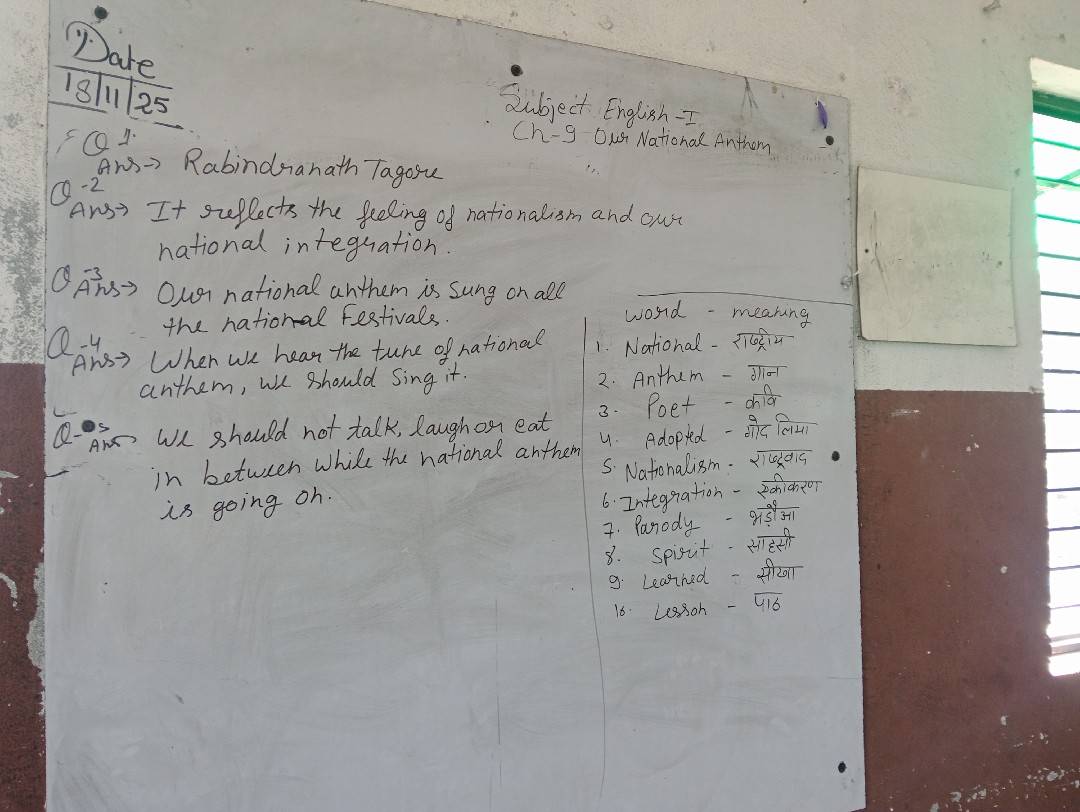 Date
18/11/25
Subject English-I
Ch-9 Our National Anthem
Q 1.
Ans→ Rabindranath Tagore
Q-2
Ans→ It reflects the feeling of nationalism and our
national integration.
Q-3
Ans→ Our national anthem is sung on all
the national Festivals.
Q-4
Ans→ When we hear the tune of national
anthem, we should sing it.
Q-5
Ans→ We should not talk, laugh or eat
in between while the national anthem
is going on.
word - meaning
1. National - राष्ट्रीय
2. Anthem - गान
3. Poet - कवि
4. Adopted - गोद लिया
5. Nationalism - राष्ट्रवाद
6. Integration - एकीकरण
7. Parody - भड़ौआ
8. Spirit - साहसी
9. Learned - सीखा
10. Lesson - पाठ